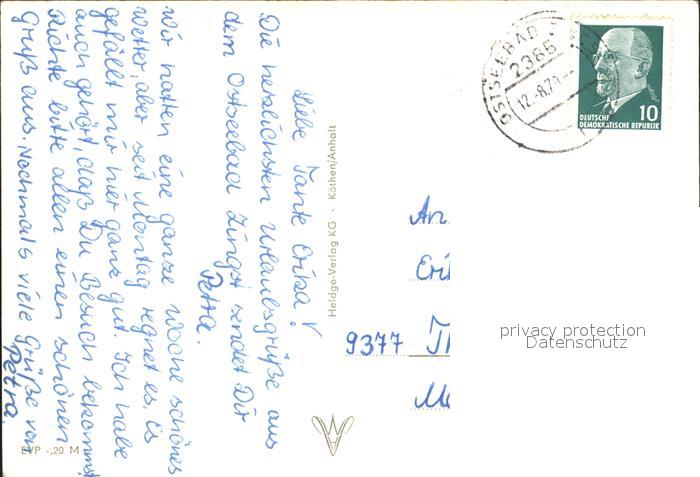 Liebe Tante Erika!
Die herzlichsten Urlaubsgrüße aus
dem Ostseebad Zingst sendet Dir
Petra.
Wir hatten eine ganze Woche schönes
Wetter, aber seit Montag regnet es. Es
gefällt mir hier ganz gut. Ich habe
auch gehört, daß Du Besuch bekommst.
Richte bitte allen einen schönen
Gruß aus. Nochmals viele Grüße von
Petra.
EVP -,20 M
Heldge-Verlag KG · Köthen/Anhalt
OSTSEEBAD
2385
12.-8.71
10
DEUTSCHE
DEMOKRATISCHE REPUBLIK
An
Eri
9377
privacy protection
Datenschutz